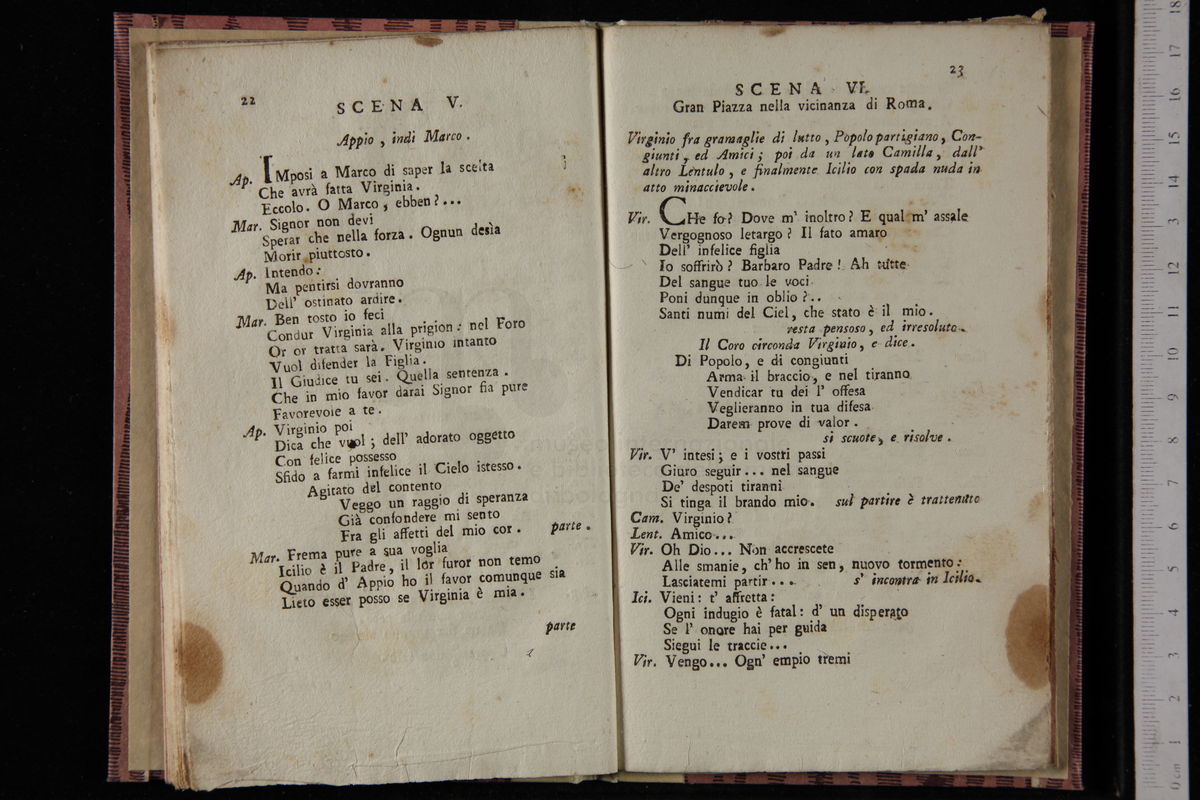 22
SCENA V.
Appio, indi Marco.
Ap. IMposi a Marco di saper la scelta
Che avrà fatta Virginia.
Eccolo. O Marco, ebben?...
Mar. Signor non devi
Sperar che nella forza. Ognun desìa
Morir piuttosto.
Ap. Intendo:
Ma pentirsi dovranno
Dell' ostinato ardire.
Mar. Ben tosto io feci
Condur Virginia alla prigion: nel Foro
Or or tratta sarà. Virginio intanto
Vuol difender la Figlia.
Il Giudice tu sei. Quella sentenza.
Che in mio favor darai Signor fia pure
Favorevole a te.
Ap. Virginio poi
Dica che vuol; dell' adorato oggetto
Con felice possesso
Sfido a farmi infelice il Cielo istesso.
Agitato del contento
Veggo un raggio di speranza
Già confondere mi sento
Fra gli affetti del mio cor. parte.
Mar. Frema pure a sua voglia
Icilio è il Padre, il lor furor non temo
Quando d' Appio ho il favor comunque sia
Lieto esser posso se Virginia è mia.
parte
23
SCENA VI.
Gran Piazza nella vicinanza di Roma.
Virginio fra gramaglie di lutto, Popolo partigiano, Con-
giunti, ed Amici; poi da un lato Camilla, dall'
altro Lentulo, e finalmente Icilio con spada nuda in
atto minaccievole.
Vir. CHe fo? Dove m' inoltro? E qual m' assale
Vergognoso letargo? Il fato amaro
Dell' infelice figlia
Io soffrirò? Barbaro Padre! Ah tutte
Del sangue tuo le voci
Poni dunque in oblio?..
Santi numi del Ciel, che stato è il mio.
resta pensoso, ed irresoluto.
Il Coro circonda Virginio, e dice.
Di Popolo, e di congiunti
Arma il braccio, e nel tiranno
Vendicar tu dei l' offesa
Veglieranno in tua difesa
Darem prove di valor.
si scuote, e risolve.
Vir. V' intesi; e i vostri passi
Giuro seguir... nel sangue
De' despoti tiranni
Si tinga il brando mio. sul partire è trattenuto
Cam. Virginio?
Lent. Amico...
Vir. Oh Dio... Non accrescete
Alle smanie, ch' ho in sen, nuovo tormento:
Lasciatemi partir... s' incontra in Icilio.
Ici. Vieni: t' affretta:
Ogni indugio è fatal: d' un disperato
Se l' onore hai per guida
Siegui le traccie...
Vir. Vengo... Ogn' empio tremi